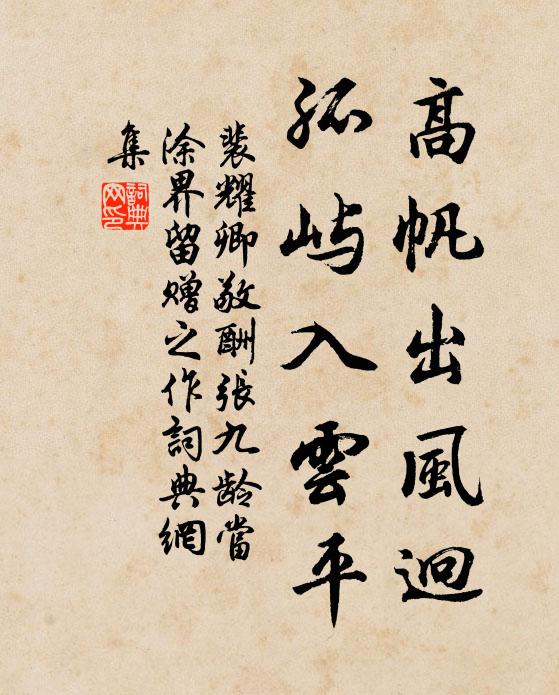 高帆出風迥
孤屿入雲平
裴耀卿敬酬張九龄當
涂界留赠之作詞典網
集
詞典网印